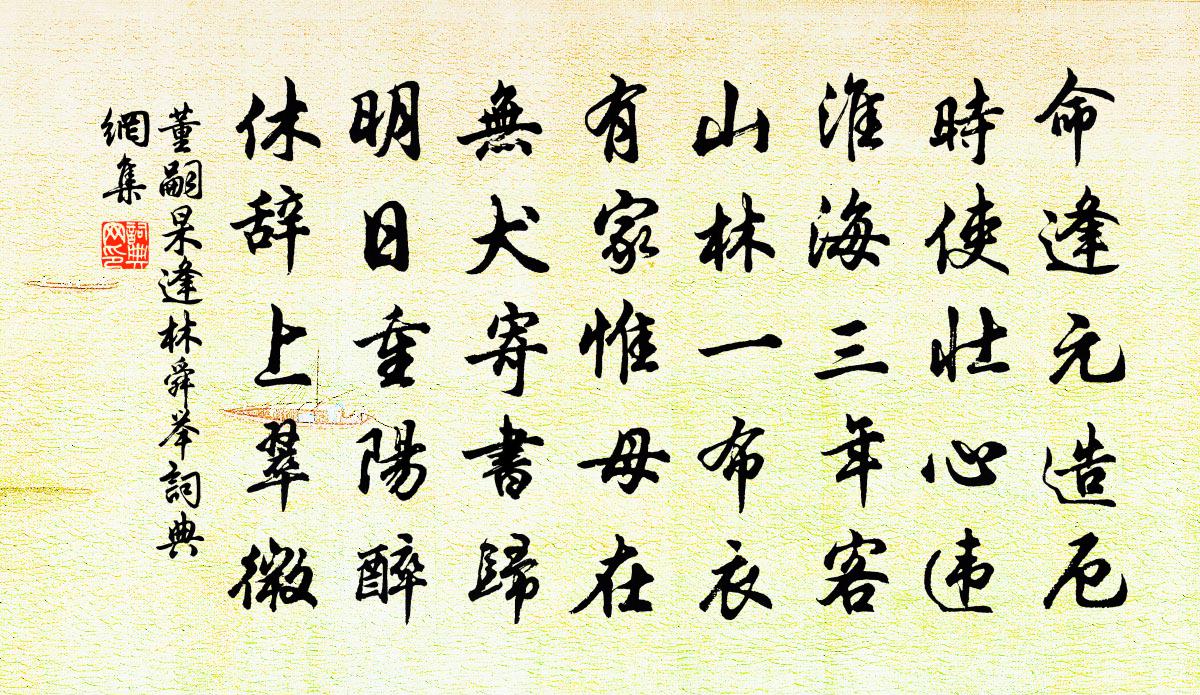 命逢元造厄
時使壮心违
淮海三年客
山林一布衣
有家惟母在
無犬寄書歸
明日重陽醉
休辞上翠微
董嗣杲逢林舜举詞典
網集
詞典
网印